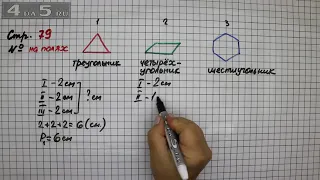 4 GDZ 5 .RU
Стр. 79
№ на полях
1 2 3
треугольник четырёх-угольник шестиугольник
I - 2 см
II - 2 см ? см
III - 2 см
2 + 2 + 2 = 6 (см)
P₁ = 6 см
I - 2 см
II - 1